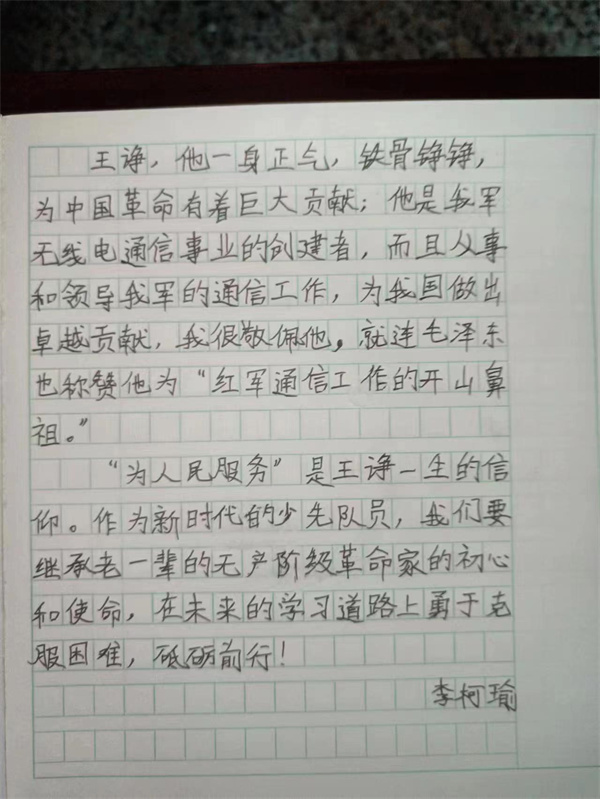 王诤，他一身正气，铁骨铮铮，
为中国革命有着巨大贡献；他是我军
无线电通信事业的创建者，而且从事
和领导我军的通信工作，为我国做出
卓越贡献，我很敬佩他。就连毛泽东
也称赞他为“红军通信工作的开山鼻
祖。”
“为人民服务”是王诤一生的信
仰。作为新时代的少先队员，我们要
继承老一辈的无产阶级革命家的初心
和使命，在未来的学习道路上勇于克
服困难，砥砺前行！
李柯瑜